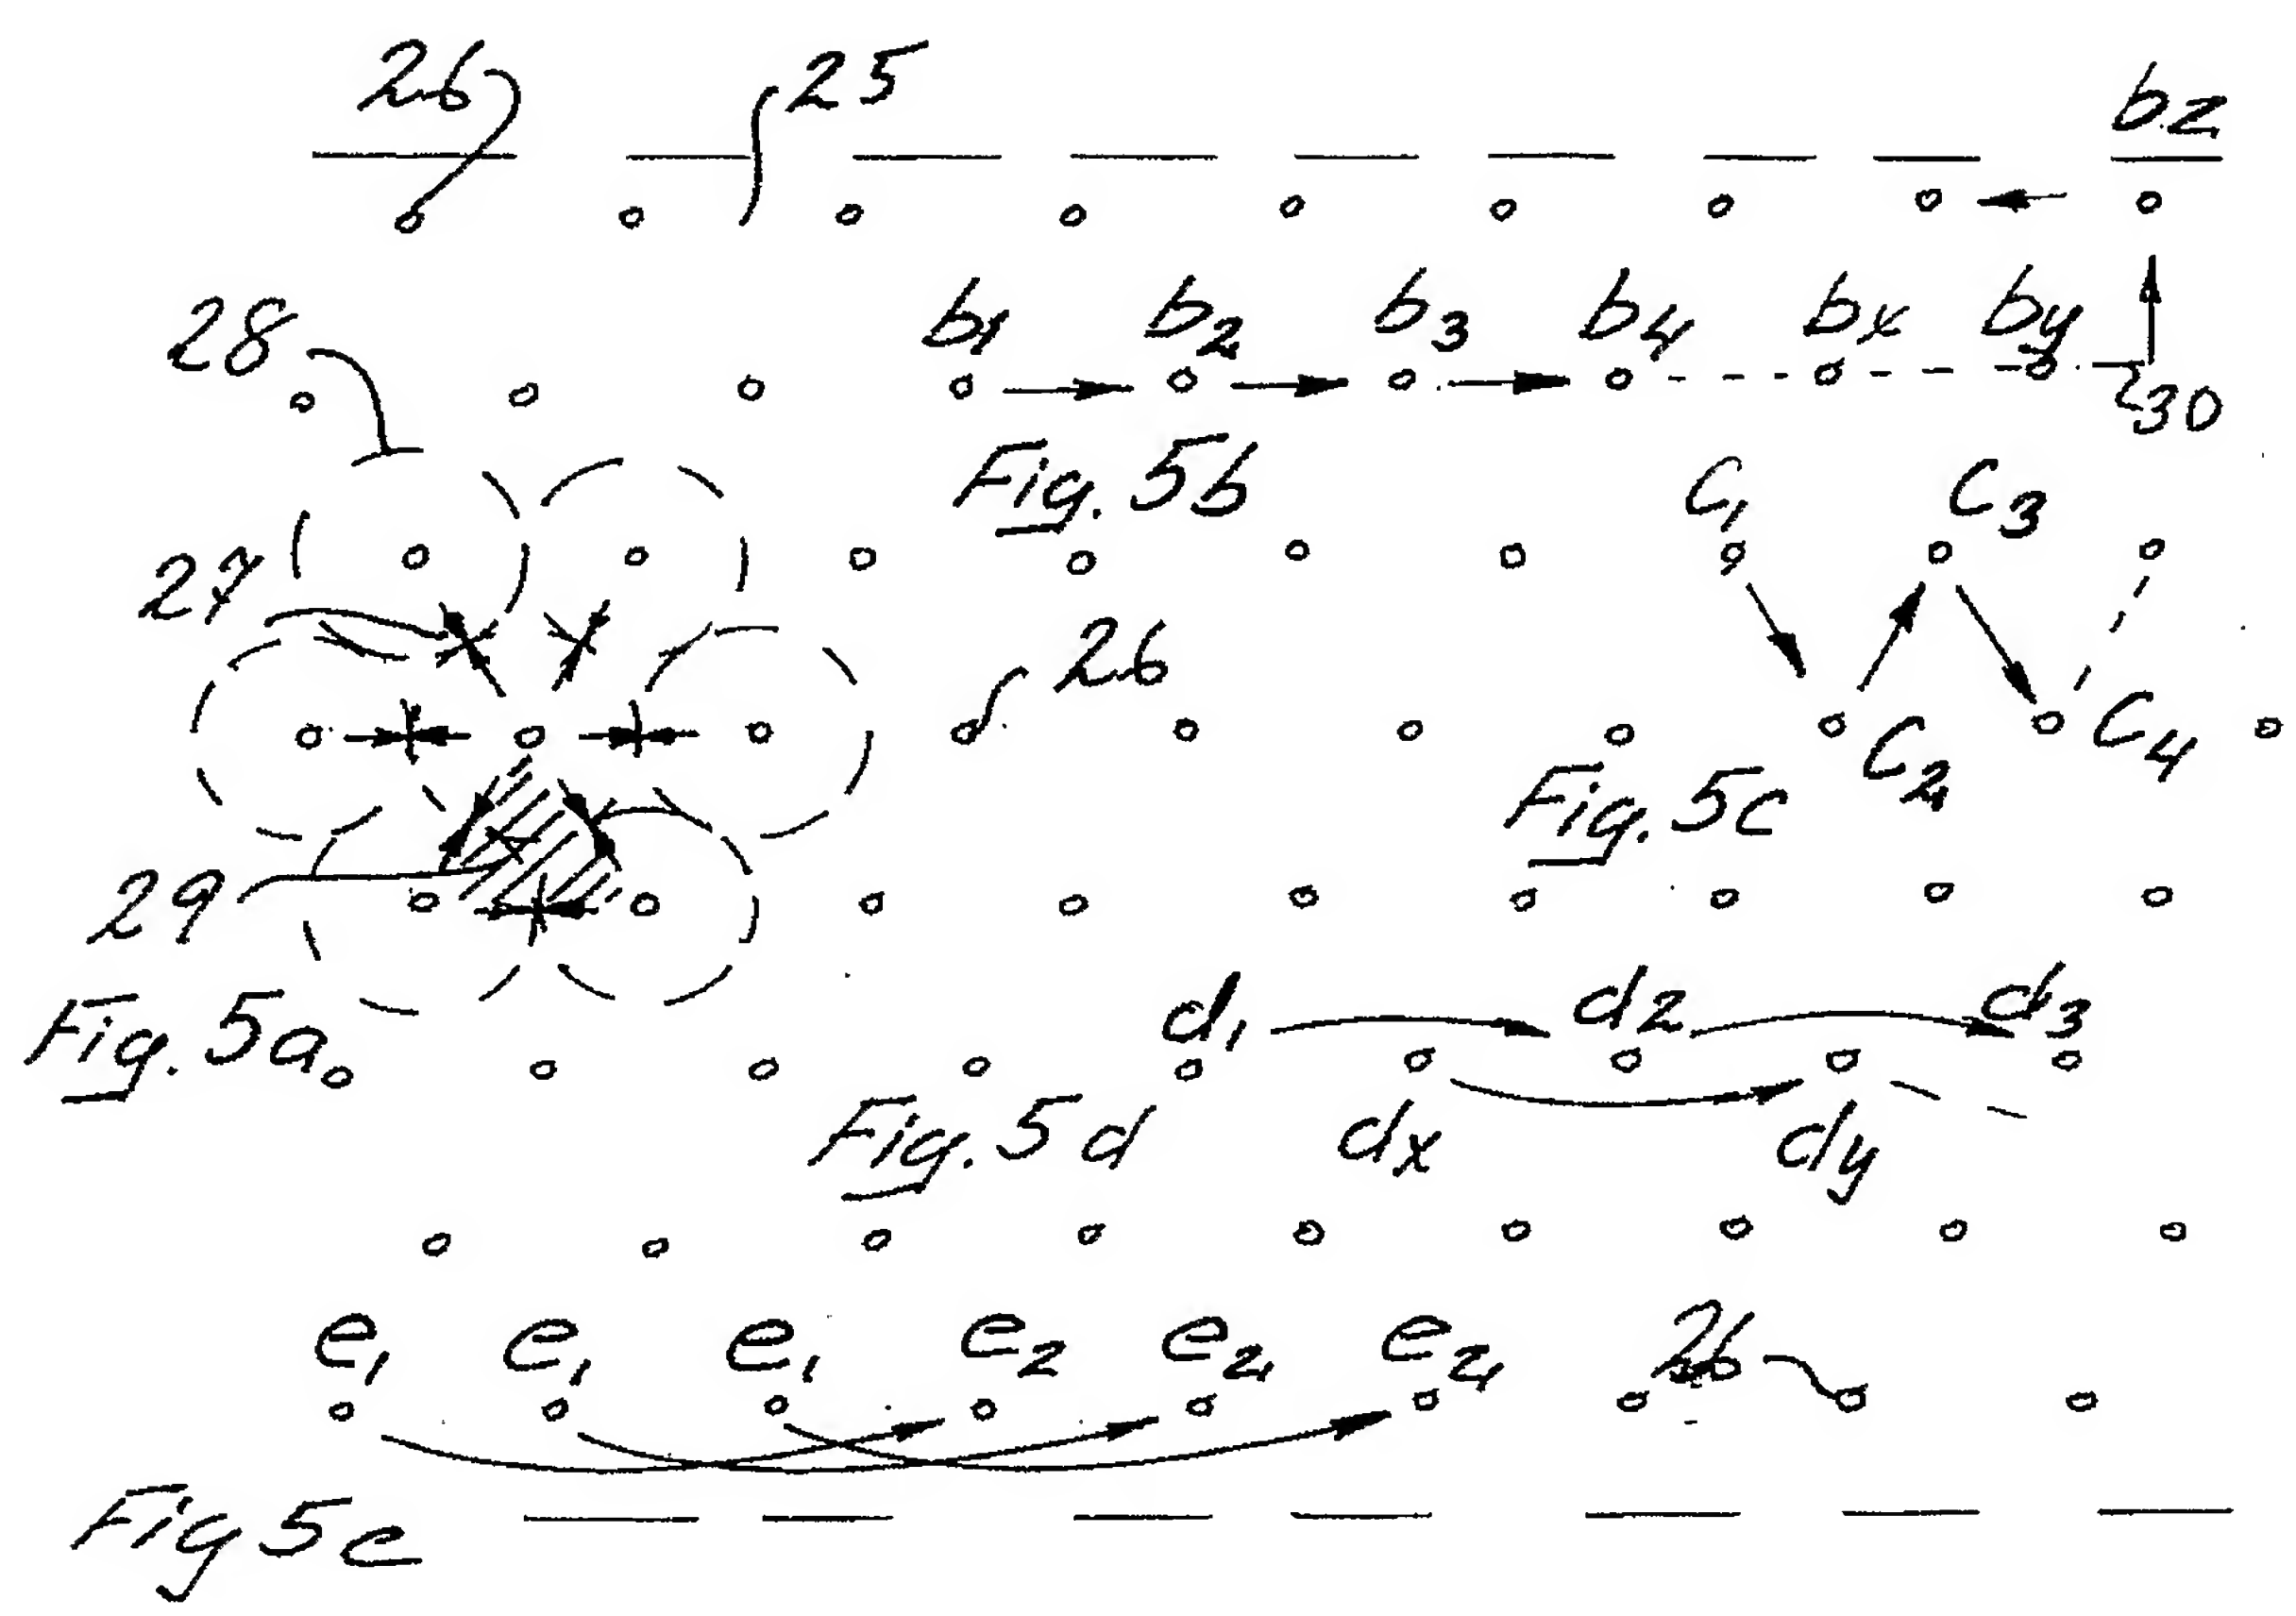 26 25 bz
28 b1 b2 b3 b4 bx by
30
Fig. 5b
C1 C3
27
26
C2 C4
Fig. 5c
29
Fig. 5a
d1 d2 d3
Fig. 5d
dx dy
e1 e1 e1 e2 e2 e2 26
Fig 5e